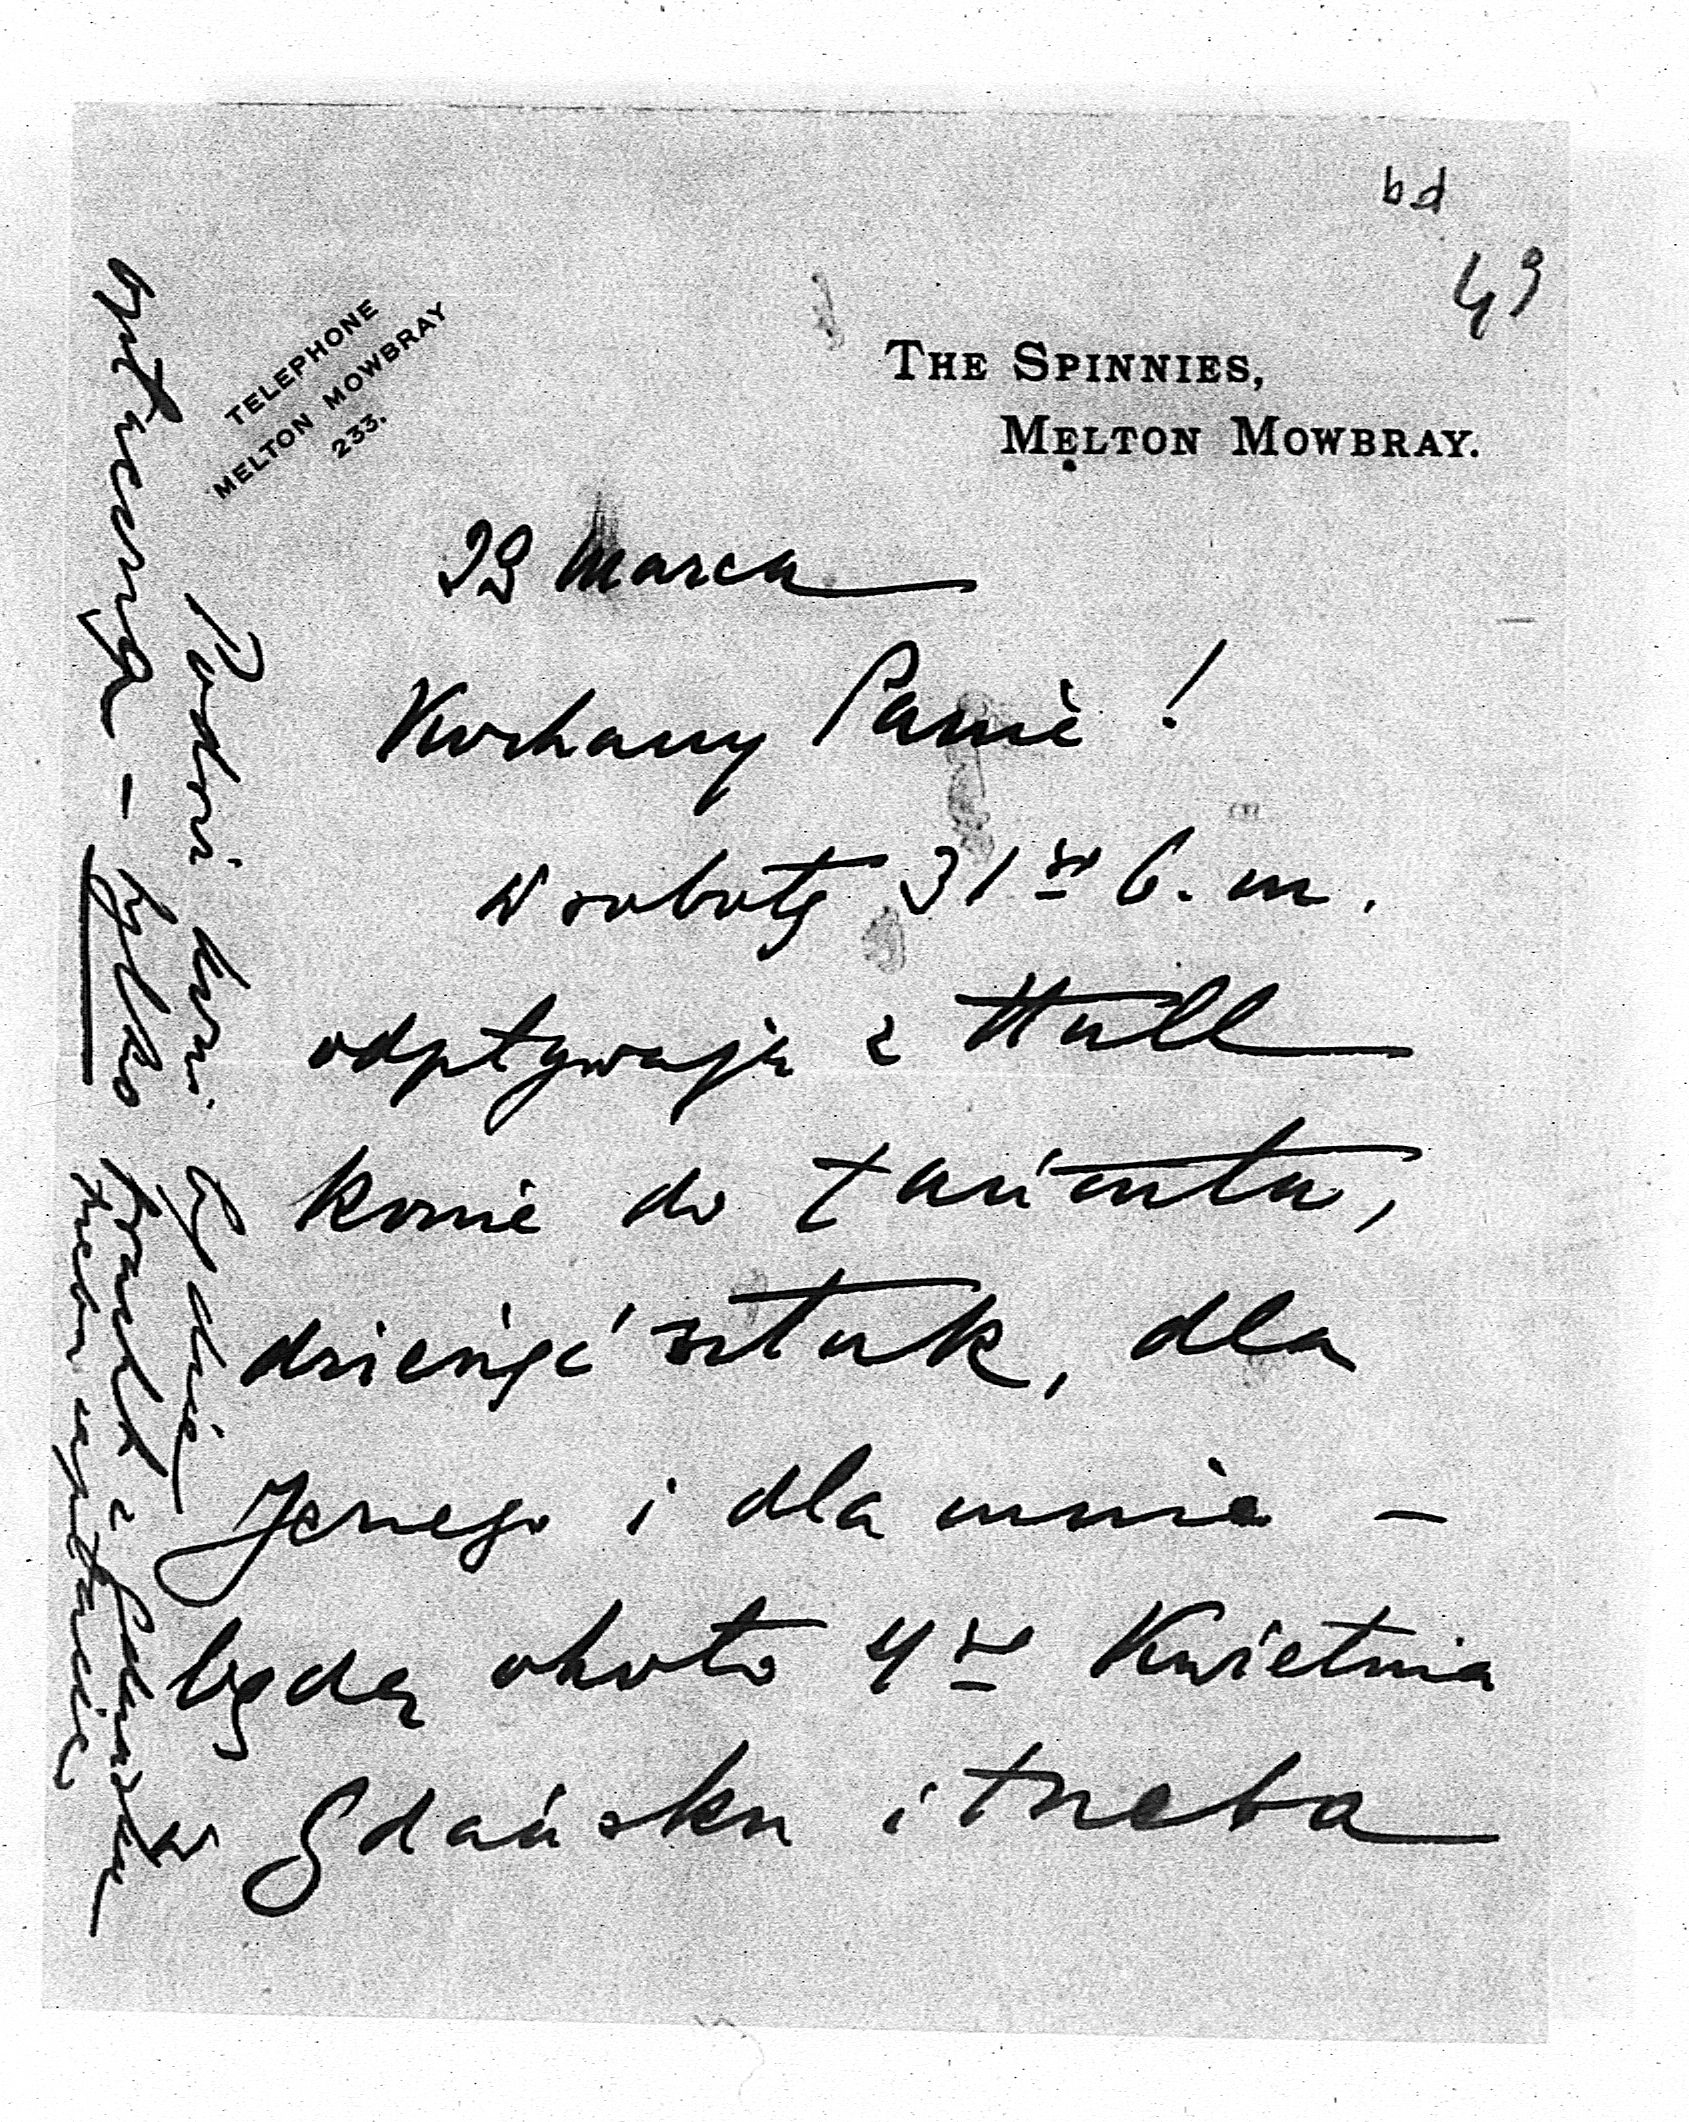 bd
49
TELEPHONE
MELTON MOWBRAY
233.
THE SPINNIES,
MELTON MOWBRAY.
marca
Kochany Panie !
w sobotę 31go b. m.
odpływają z Hull
konie do Łańcuta,
dziesięć sztuk, dla
Jerzego i dla mnie —
będą około 4go Kwietnia
w Gdańsku i trzeba
koni będzie
tylko
trzeba